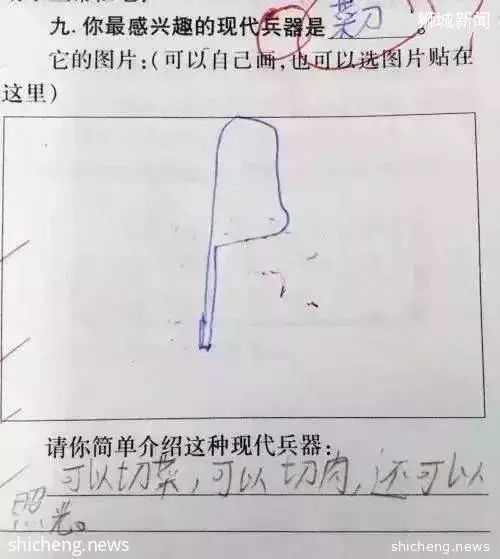 狮城新闻
九. 你最感兴趣的现代兵器是 菜刀 。
它的图片:(可以自己画,也可以选图片贴在
这里)
请你简单介绍这种现代兵器:
可以切菜,可以切肉,还可以
照光。
shicheng.news
shicheng.news